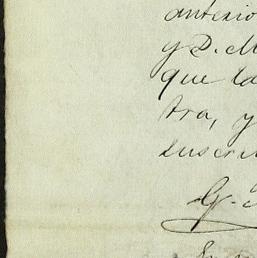 anterio
y D. M
que la
tra, y
suscri
G.